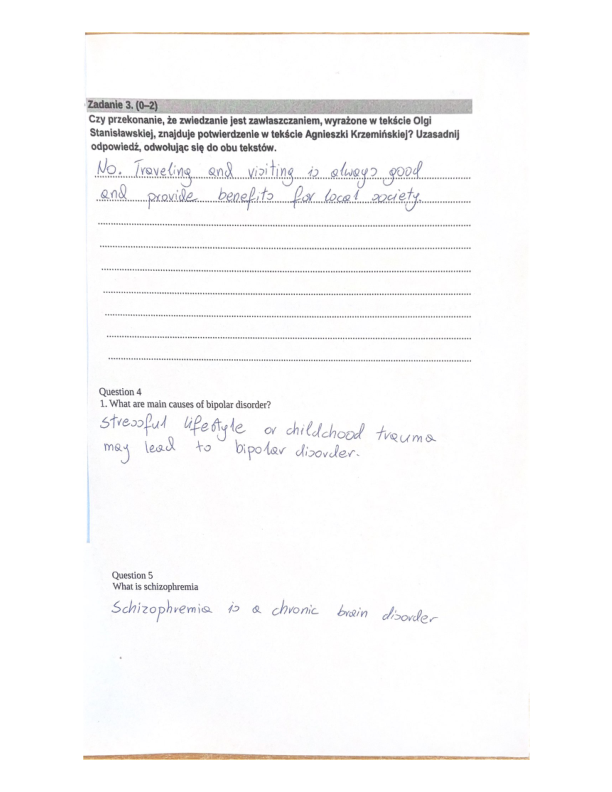 Zadanie 3. (0–2)
Czy przekonanie, że zwiedzanie jest zawłaszczaniem, wyrażone w tekście Olgi
Stanisławskiej, znajduje potwierdzenie w tekście Agnieszki Krzemińskiej? Uzasadnij
odpowiedź, odwołując się do obu tekstów.
No. Traveling and visiting is always good
and provide benefits for local society.
Question 4
1. What are main causes of bipolar disorder?
Stressful lifestyle or childchood trauma
may lead to bipolar disorder.
Question 5
What is schizophremia
Schizophremia is a chronic brain disorder